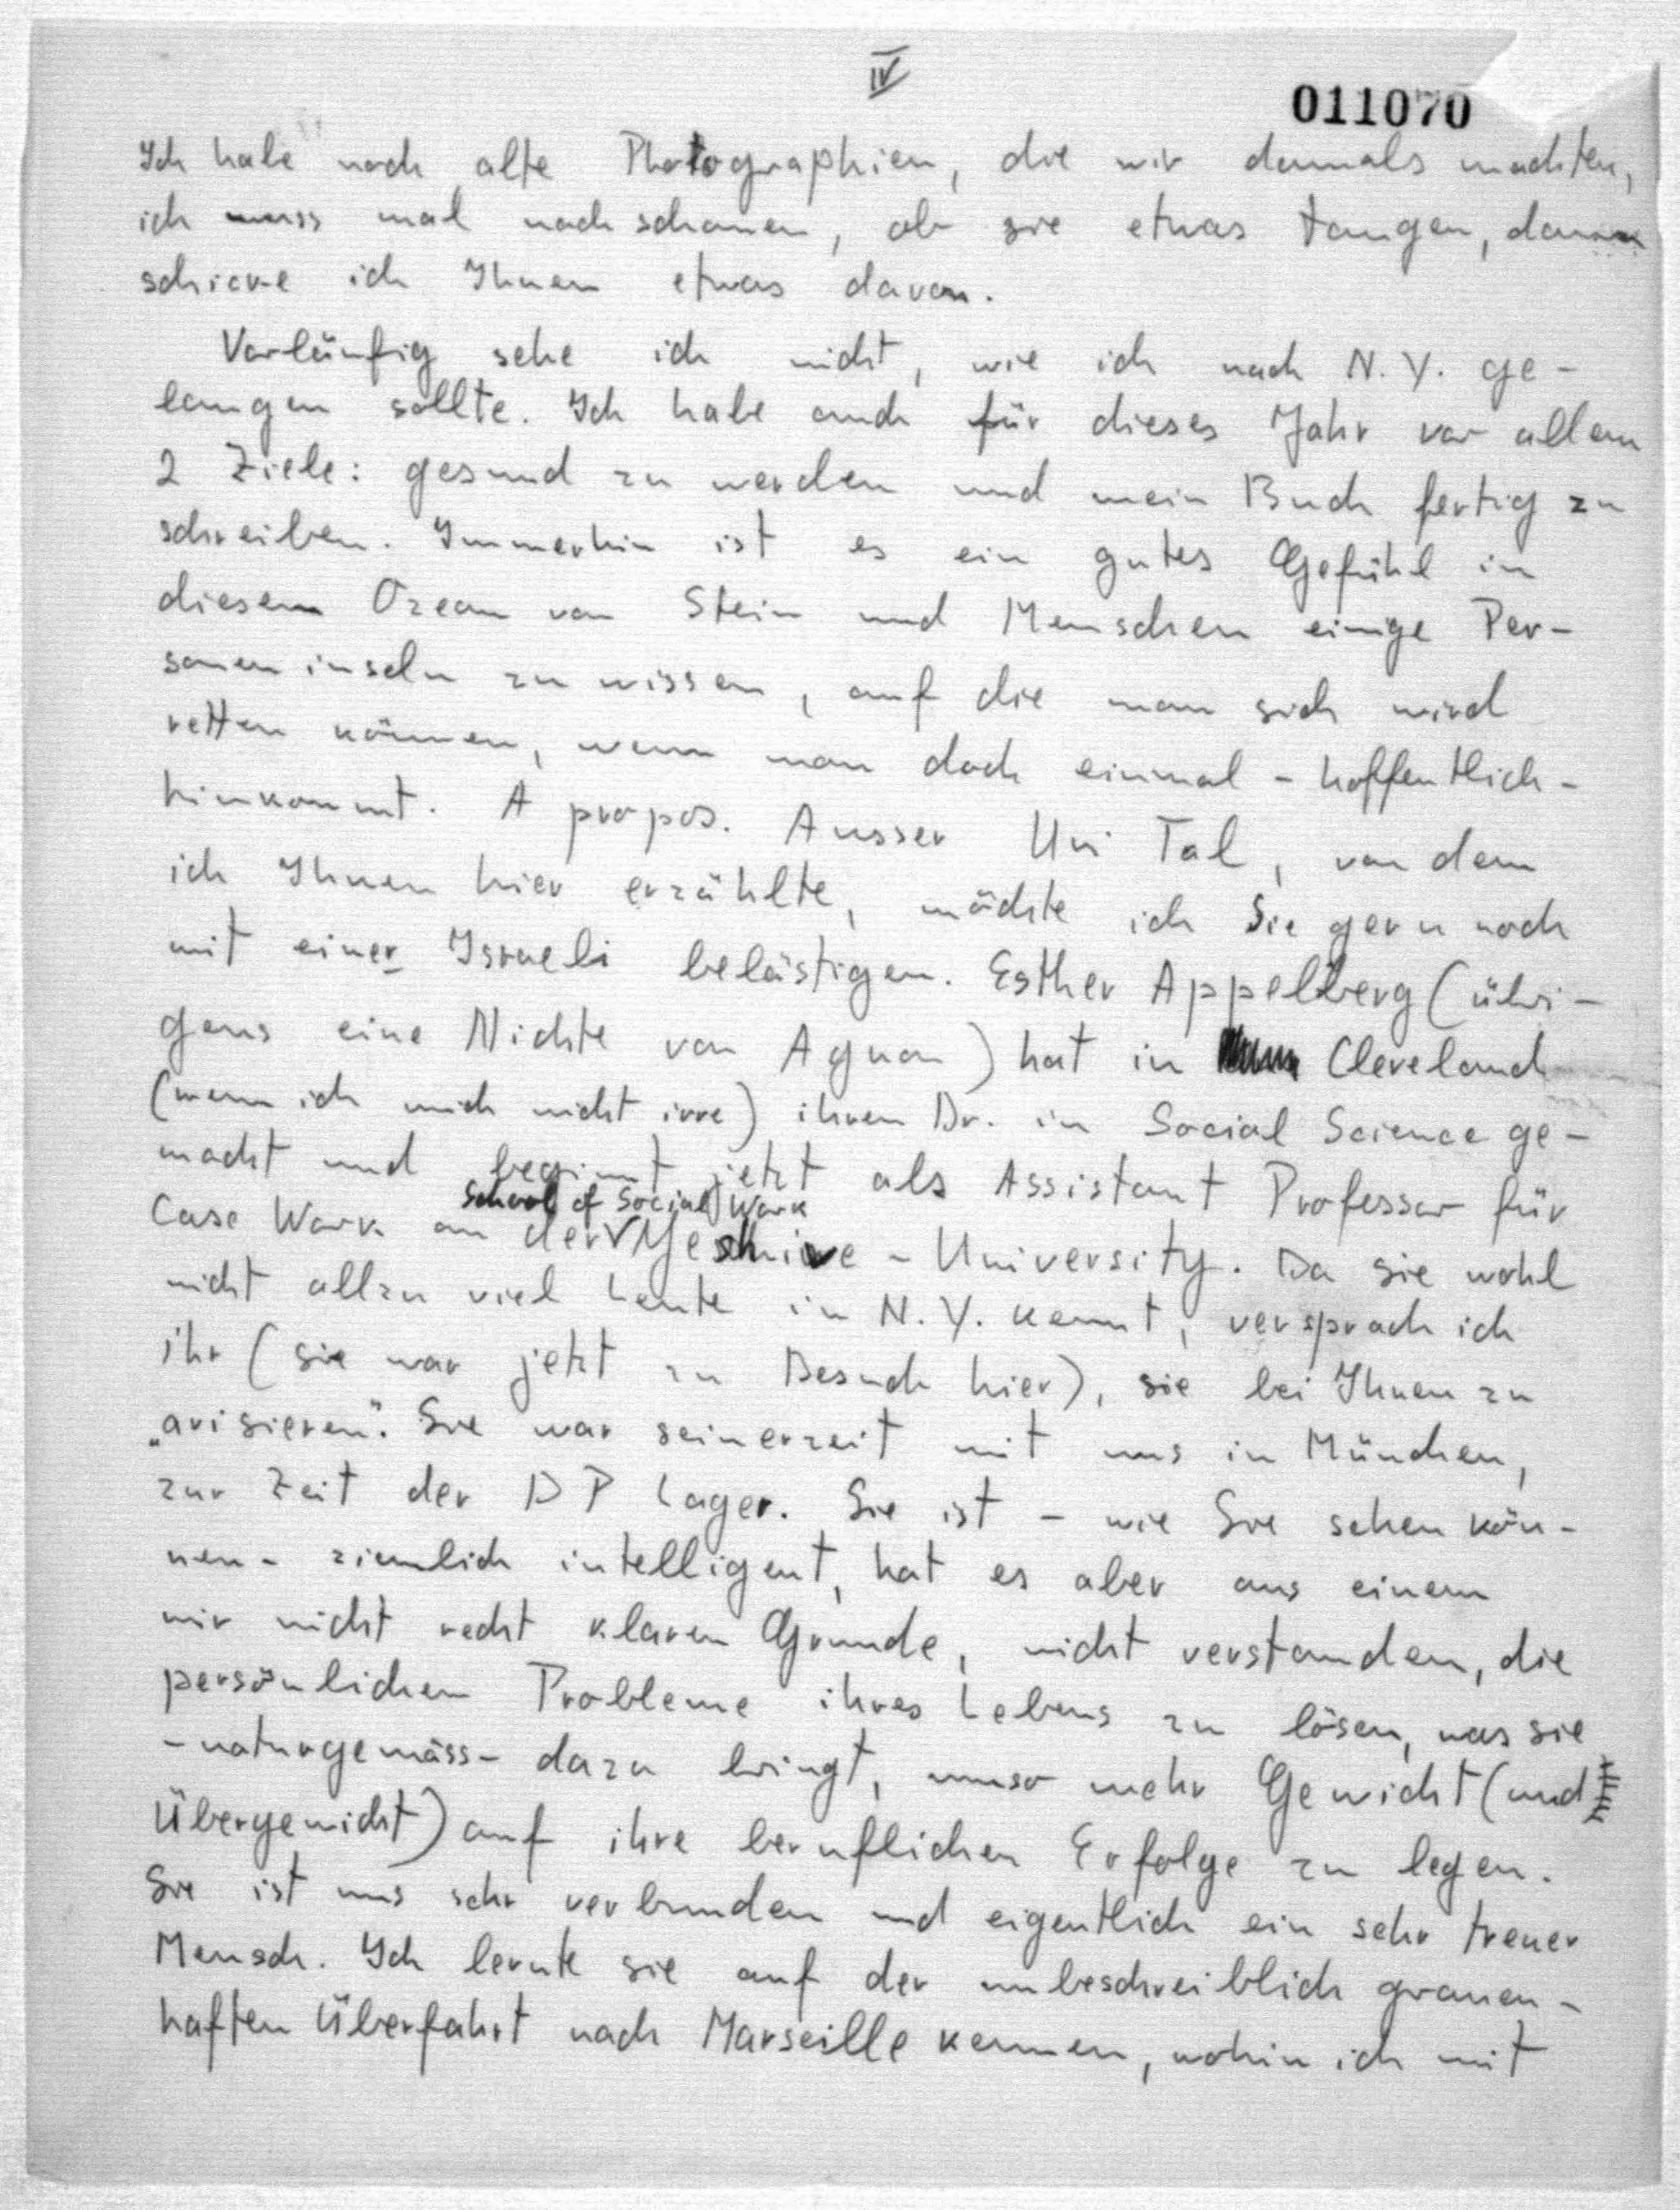 IV
011070
Ich habe noch alte Photographien, die wir damals machten,
ich muss mal nachschauen, ob sie etwas taugen, dann
schicke ich Ihnen etwas davon.
Vorläufig sehe ich nicht, wie ich nach N.Y. ge-
langen sollte. Ich habe auch für dieses Jahr vor allem
2 Ziele: gesund zu werden und mein Buch fertig zu
schreiben. Immerhin ist es ein gutes Gefühl in
diesem Ozean von Stein und Menschen einige Per-
soneninseln zu wissen, auf die man sich wird
retten können, wenn man doch einmal - hoffentlich -
hinkommt. A propos. Ausser Uri Tal, von dem
ich Ihnen hier erzählte, möchte ich Sie gern noch
mit einer Israeli belästigen. Esther Appelberg (übri-
gens eine Nichte von Agnon) hat in Cleveland
(wenn ich mich nicht irre) ihren Dr. in Social Science ge-
macht und beginnt jetzt als Assistant Professor für
School of Social Work
Case Work an der Yeshive - University. Da sie wohl
nicht allzu viel Leute in N.Y. kennt, versprach ich
ihr (sie war jetzt zu Besuch hier), sie bei Ihnen zu
„avisieren". Sie war seinerzeit mit uns in München,
zur Zeit der DP Lager. Sie ist - wie Sie sehen kön-
nen - ziemlich intelligent, hat es aber aus einem
mir nicht recht klaren Grunde, nicht verstanden, die
persönlichen Probleme ihres Lebens zu lösen, was sie
- naturgemäss - dazu bringt, umso mehr Gewicht (und
Übergewicht) auf ihre beruflichen Erfolge zu legen.
Sie ist uns sehr verbunden und eigentlich ein sehr treuer
Mensch. Ich lernte sie auf der unbeschreiblich grauen-
haften Überfahrt nach Marseille kennen, wohin ich mit